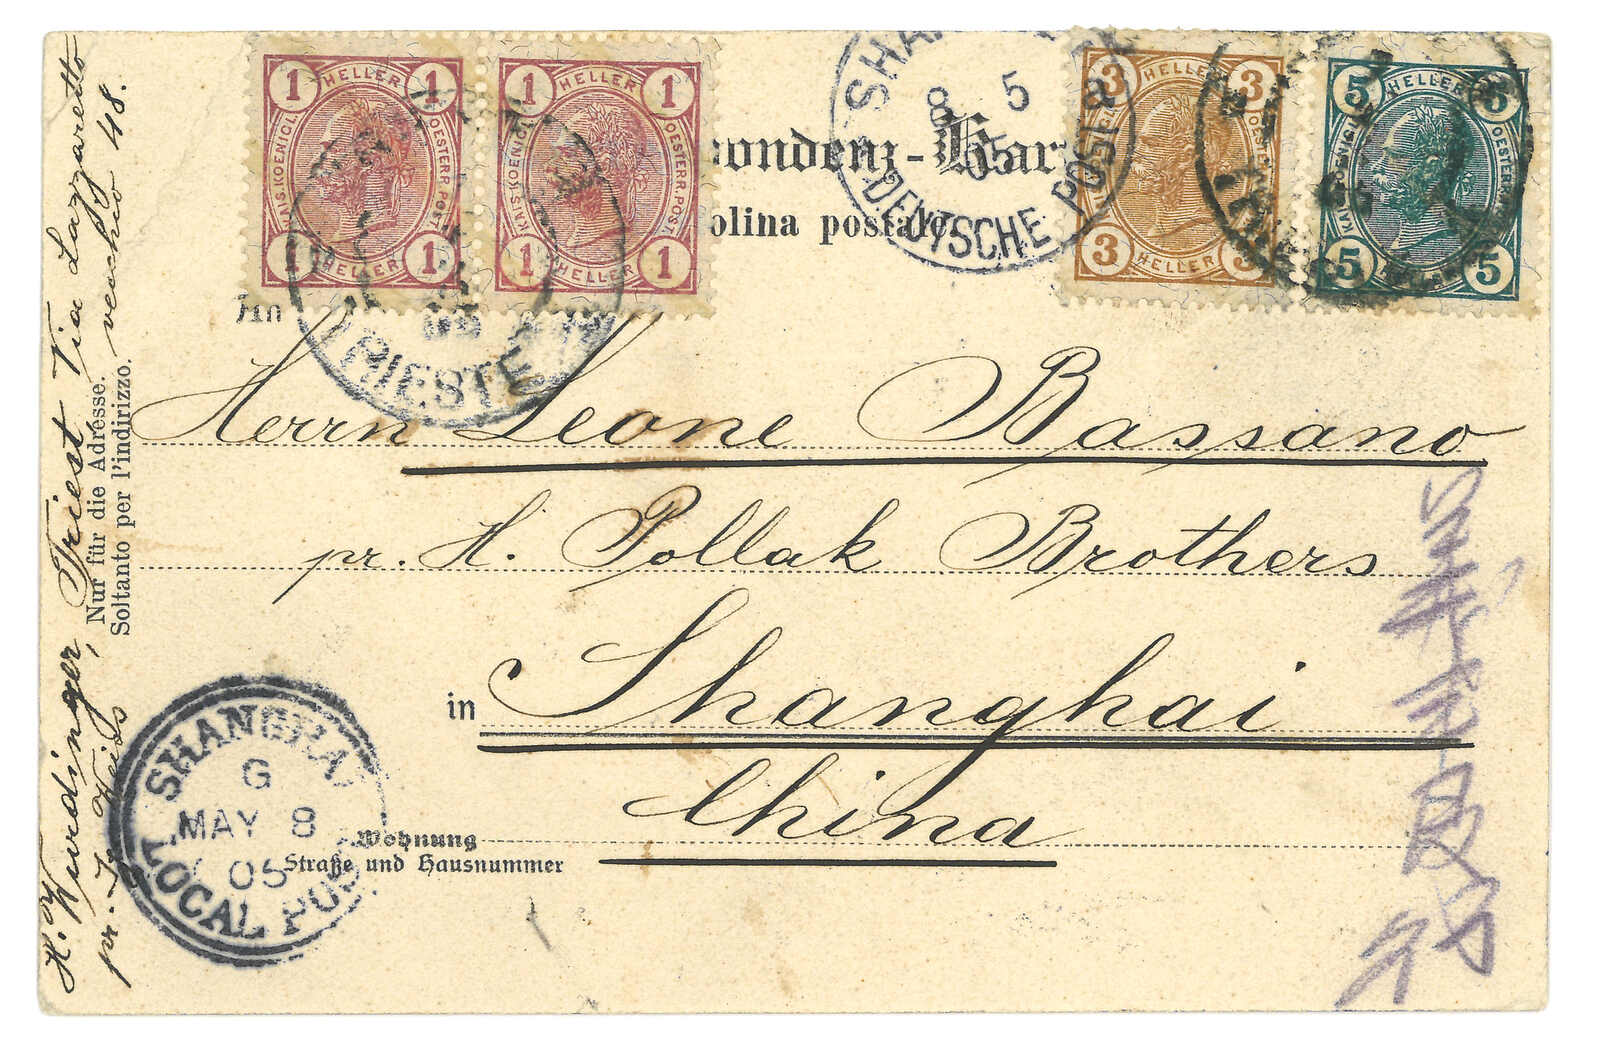 1 HELLER 1
KAIS. KOENIGL. OESTERR. POST.
1 HELLER 1
1 HELLER 1
KAIS. KOENIGL. OESTERR. POST.
1 HELLER 1
3 HELLER 3
3 HELLER 3
5 HELLER 5
KAIS. KOENIGL. OESTERR. POST.
5 HELLER 5
TRIESTE
8 5
05
DEUTSCHE POST
ondenz-Kar
olina postale
An
Herrn Leone Bassano
pr. H. Pollak Brothers
in Shanghai
China
Wohnung
Straße und Hausnummer
Nur für die Adresse.
Soltanto per l'indirizzo.
H. Wurdinger, Triest Via Lazzaretto
vecchio 48.
SHANGHAI
G
MAY 8
05
LOCAL POST